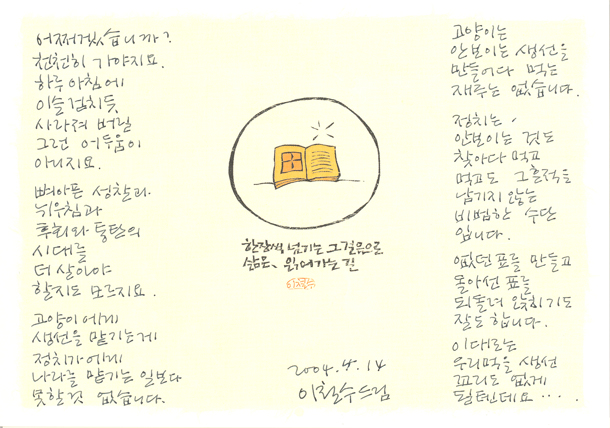 어쩌겠습니까?
천천히 가야지요.
하루 아침에
이슬 걷히듯
사라져 버릴
그런 어두움이
아니지요.
뼈아픈 성찰과
뉘우침과
후회와 통탄의
시대를
더 살아야
할지도 모르지요.
고양이에게
생선을 맡기는게
정치가에게
나라를 맡기는 일보다
못할것 없습니다.
한장씩 넘기는 그 걸음으로
삶은, 읽어가는 길
이철수
2004.4.14
이철수드림
고양이는
안보이는 생선을
만들어다 먹는
재주는 없습니다.
정치는,
안보이는 것도
찾아다 먹고
먹고도 그 흔적을
남기지 않는
비범한 수단
입니다.
없던 표를 만들고
돌아선 표를
되돌려 앉히기도
잘도 합니다.
이대로는
우리먹을 생선
꼬리도 없게
될텐데요....